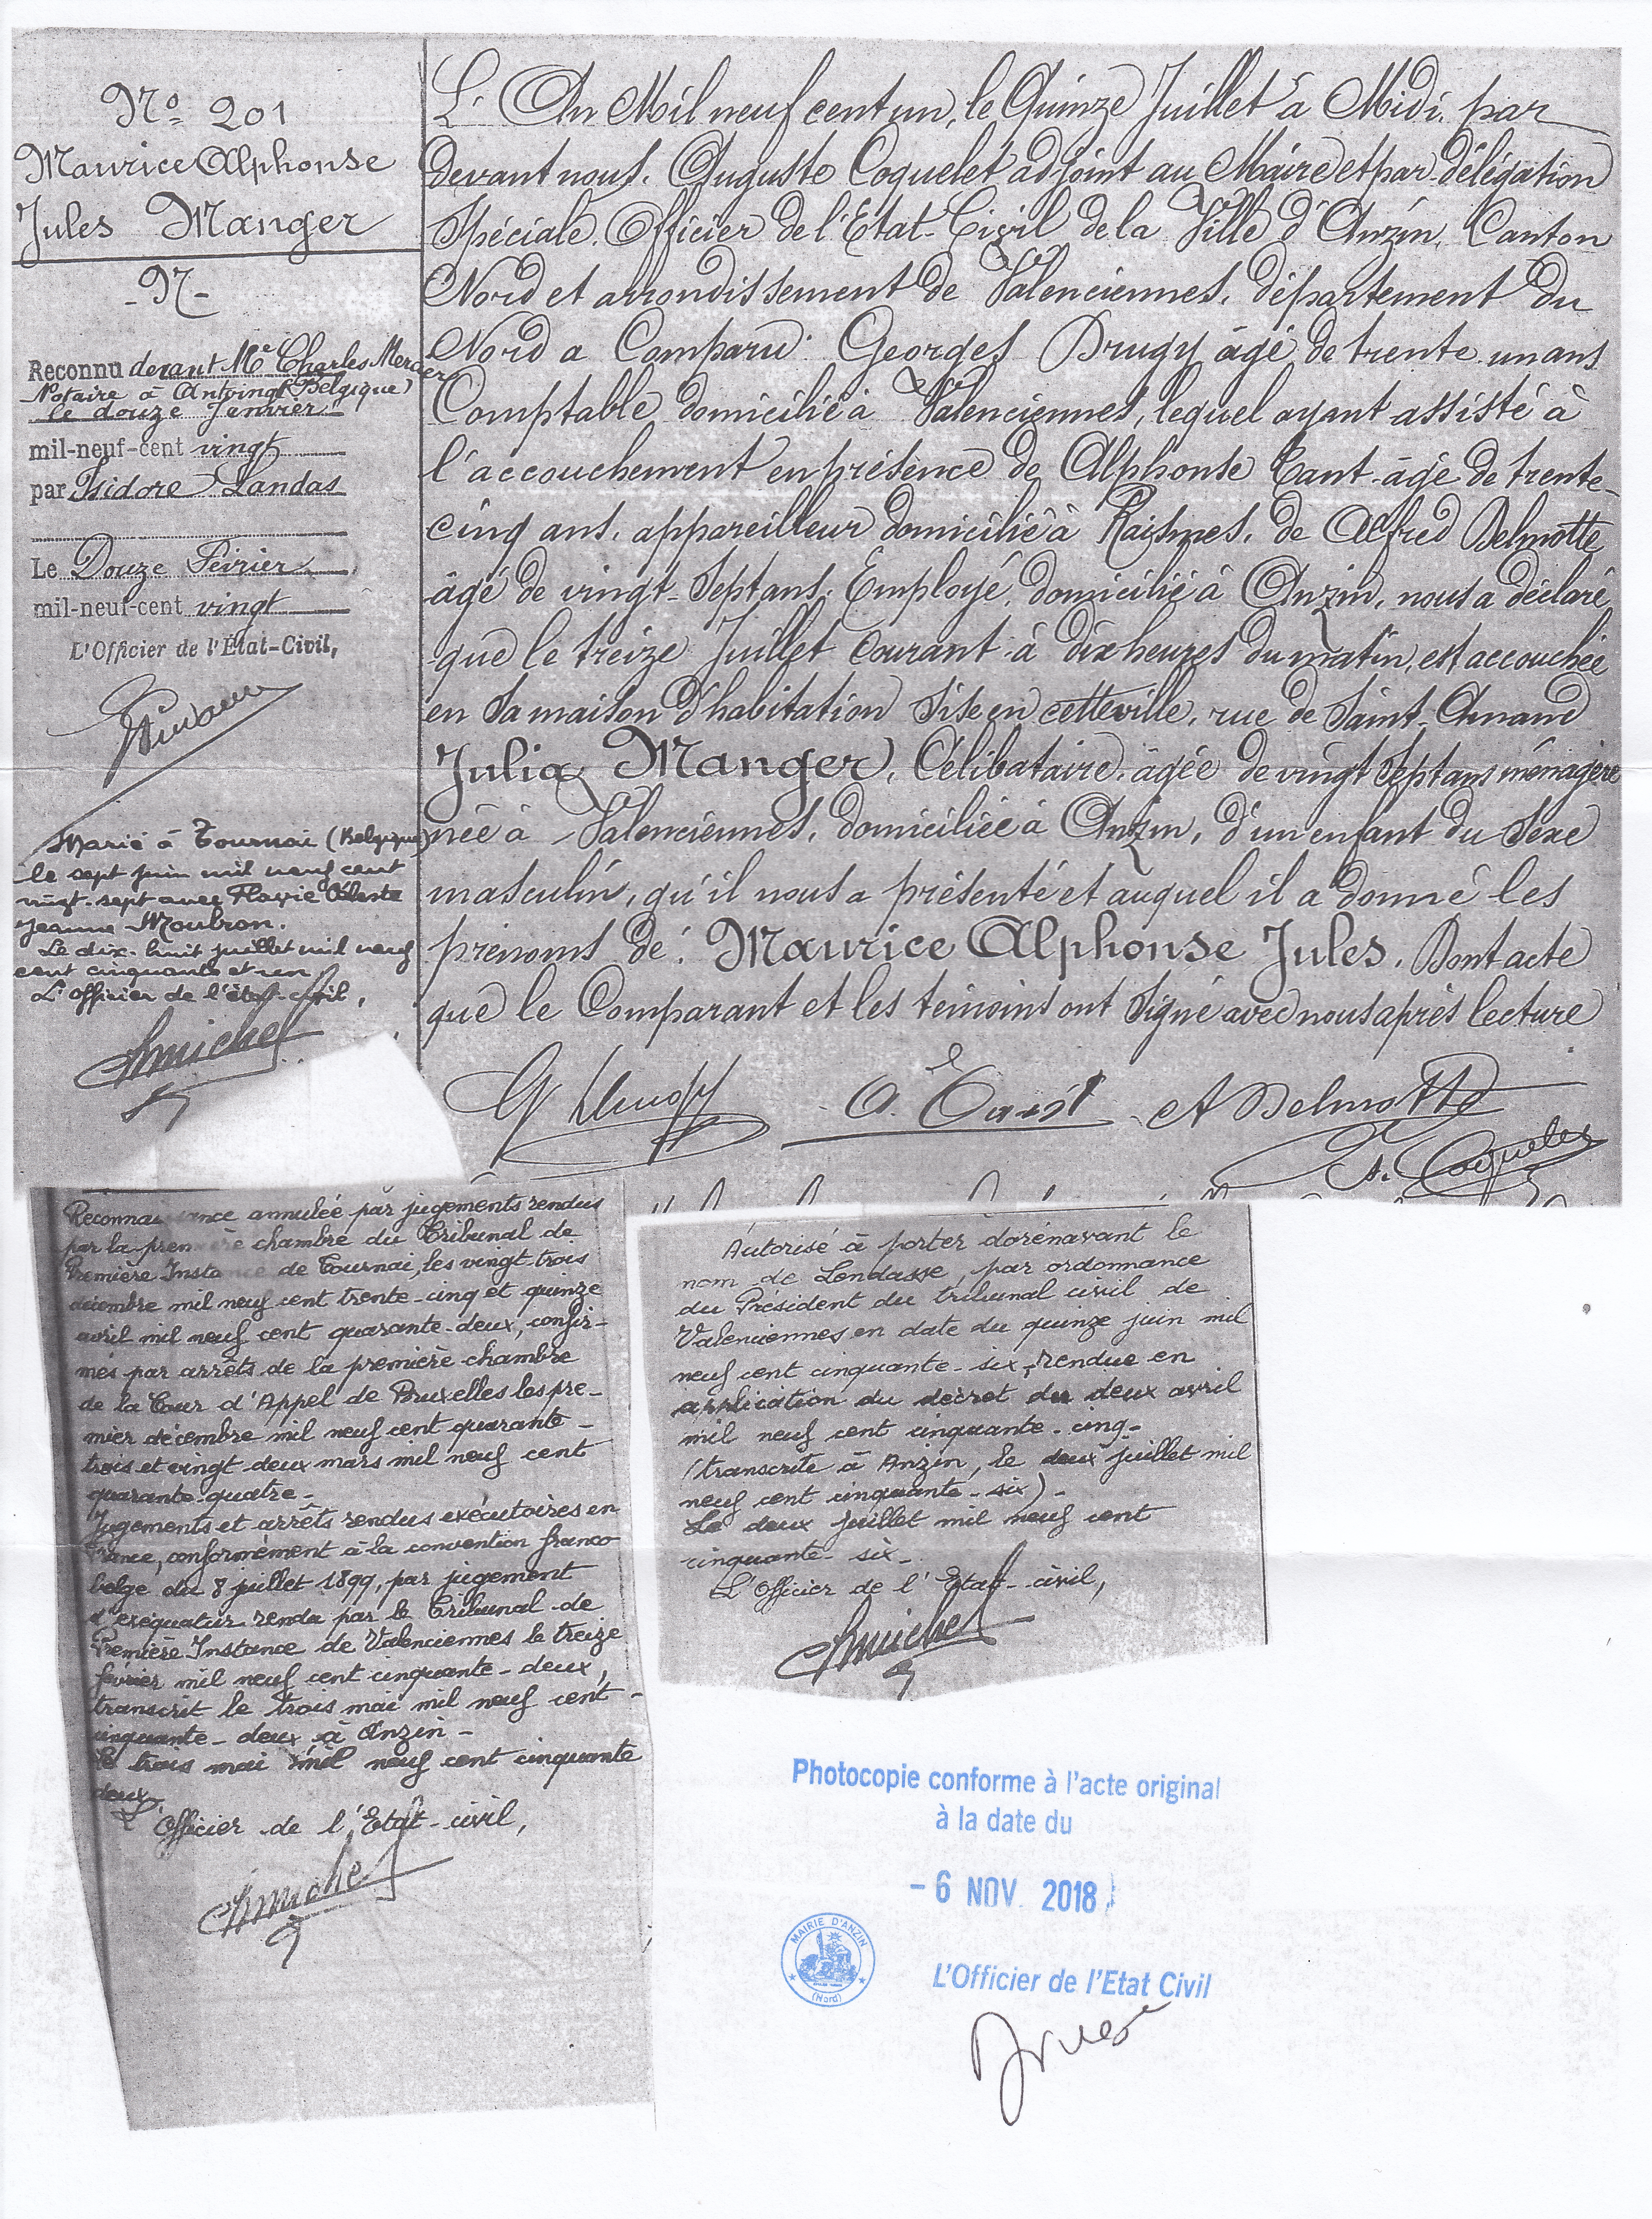 No 201
Maurice Alphonse
Jules Manger
- N -
Reconnu devant Me Charles Mercier
Notaire à Antoing (Belgique)
le douze Janvier
mil-neuf-cent vingt
par Isidore Landas
Le Douze Février
mil-neuf-cent vingt
L'Officier de l'État-Civil,
Marié à Tournai (Belgique)
le sept juin mil neuf cent
vingt-sept avec Flavie Céleste
Jeanne Moubron.
Le dix-huit juillet mil neuf
cent cinquante et un
L'officier de l'état-civil,
L'An Mil neuf cent un, le Quinze Juillet à Midi, par
devant nous, Auguste Coquelet adjoint au Maire et par délégation
Spéciale, Officier de l'Etat-Civil de la Ville d'Anzin, Canton
Nord et arrondissement de Valenciennes, département du
Nord a Comparu: Georges Drugy âgé de trente un ans
Comptable domicilié à Valenciennes, lequel ayant assisté à
l'accouchement en présence de Alphonse Cant âgé de trente-
cinq ans, appareilleur domicilié à Raismes, de Alfred Delmotte
âgé de vingt-Sept ans, Employé, domicilié à Anzin, nous a déclaré
que le treize Juillet Courant à dix heures du matin, est accouchée
en Sa maison d'habitation Sise en cette ville, rue de Saint-Amand
Julia Manger, Célibataire, âgée de vingt Sept ans ménagère
née à Valenciennes, domiciliée à Anzin, d'un enfant du Sexe
masculin, qu'il nous a présenté et auquel il a donné les
prénoms de: Maurice Alphonse Jules, Dont acte
que le Comparant et les témoins ont Signé avec nous après lecture
A Delmotte
A. Coquelet
Reconnaissance annulée par jugements rendus
par la première chambre du Tribunal de
Première Instance de Tournai, les vingt-trois
décembre mil neuf cent trente-cinq et quinze
avril mil neuf cent quarante-deux, confir-
més par arrêts de la première chambre
de la Cour d'Appel de Bruxelles les pre-
mier décembre mil neuf cent quarante-
trois et vingt deux mars mil neuf cent
quarante-quatre -
Jugements et arrêts rendus exécutoires en
France, conformément à la convention franco-
belge du 8 juillet 1899, par jugement
d'exequatur rendu par le Tribunal de
Première Instance de Valenciennes le treize
février mil neuf cent cinquante-deux,
transcrit le trois mai mil neuf cent-
cinquante-deux à Anzin -
Le trois mai mil neuf cent cinquante
deux
L'Officier de l'Etat-civil,
Autorisé à porter dorénavant le
nom de Lendasse, par ordonnance
du Président du tribunal civil de
Valenciennes en date du quinze juin mil
neuf cent cinquante-six, rendue en
application du décret du deux avril
mil neuf cent cinquante-cinq-
(transcrite à Anzin, le deux juillet mil
neuf cent cinquante-six) -
Le deux juillet mil neuf cent
cinquante-six -
L'Officier de l'Etat-civil,
Photocopie conforme à l'acte original
à la date du
- 6 NOV. 2018
MAIRIE D'ANZIN
(Nord)
L'Officier de l'Etat Civil